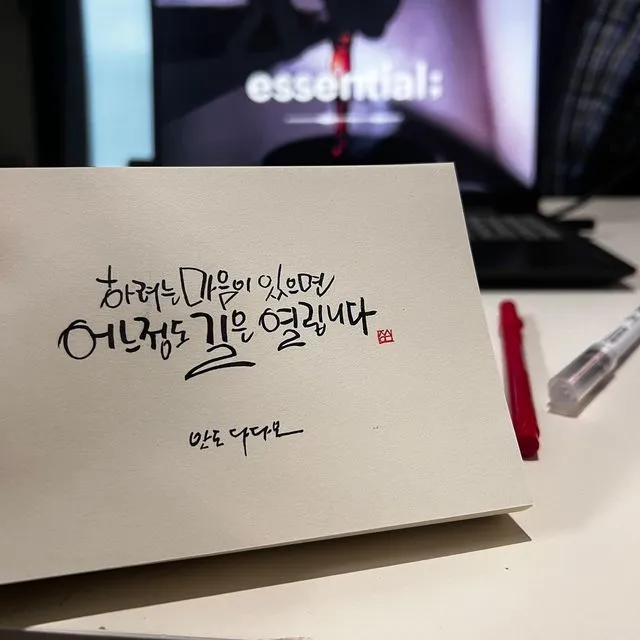 essential:
하려는 마음이 있으면
어느정도 길은 열립니다
안도 다다오